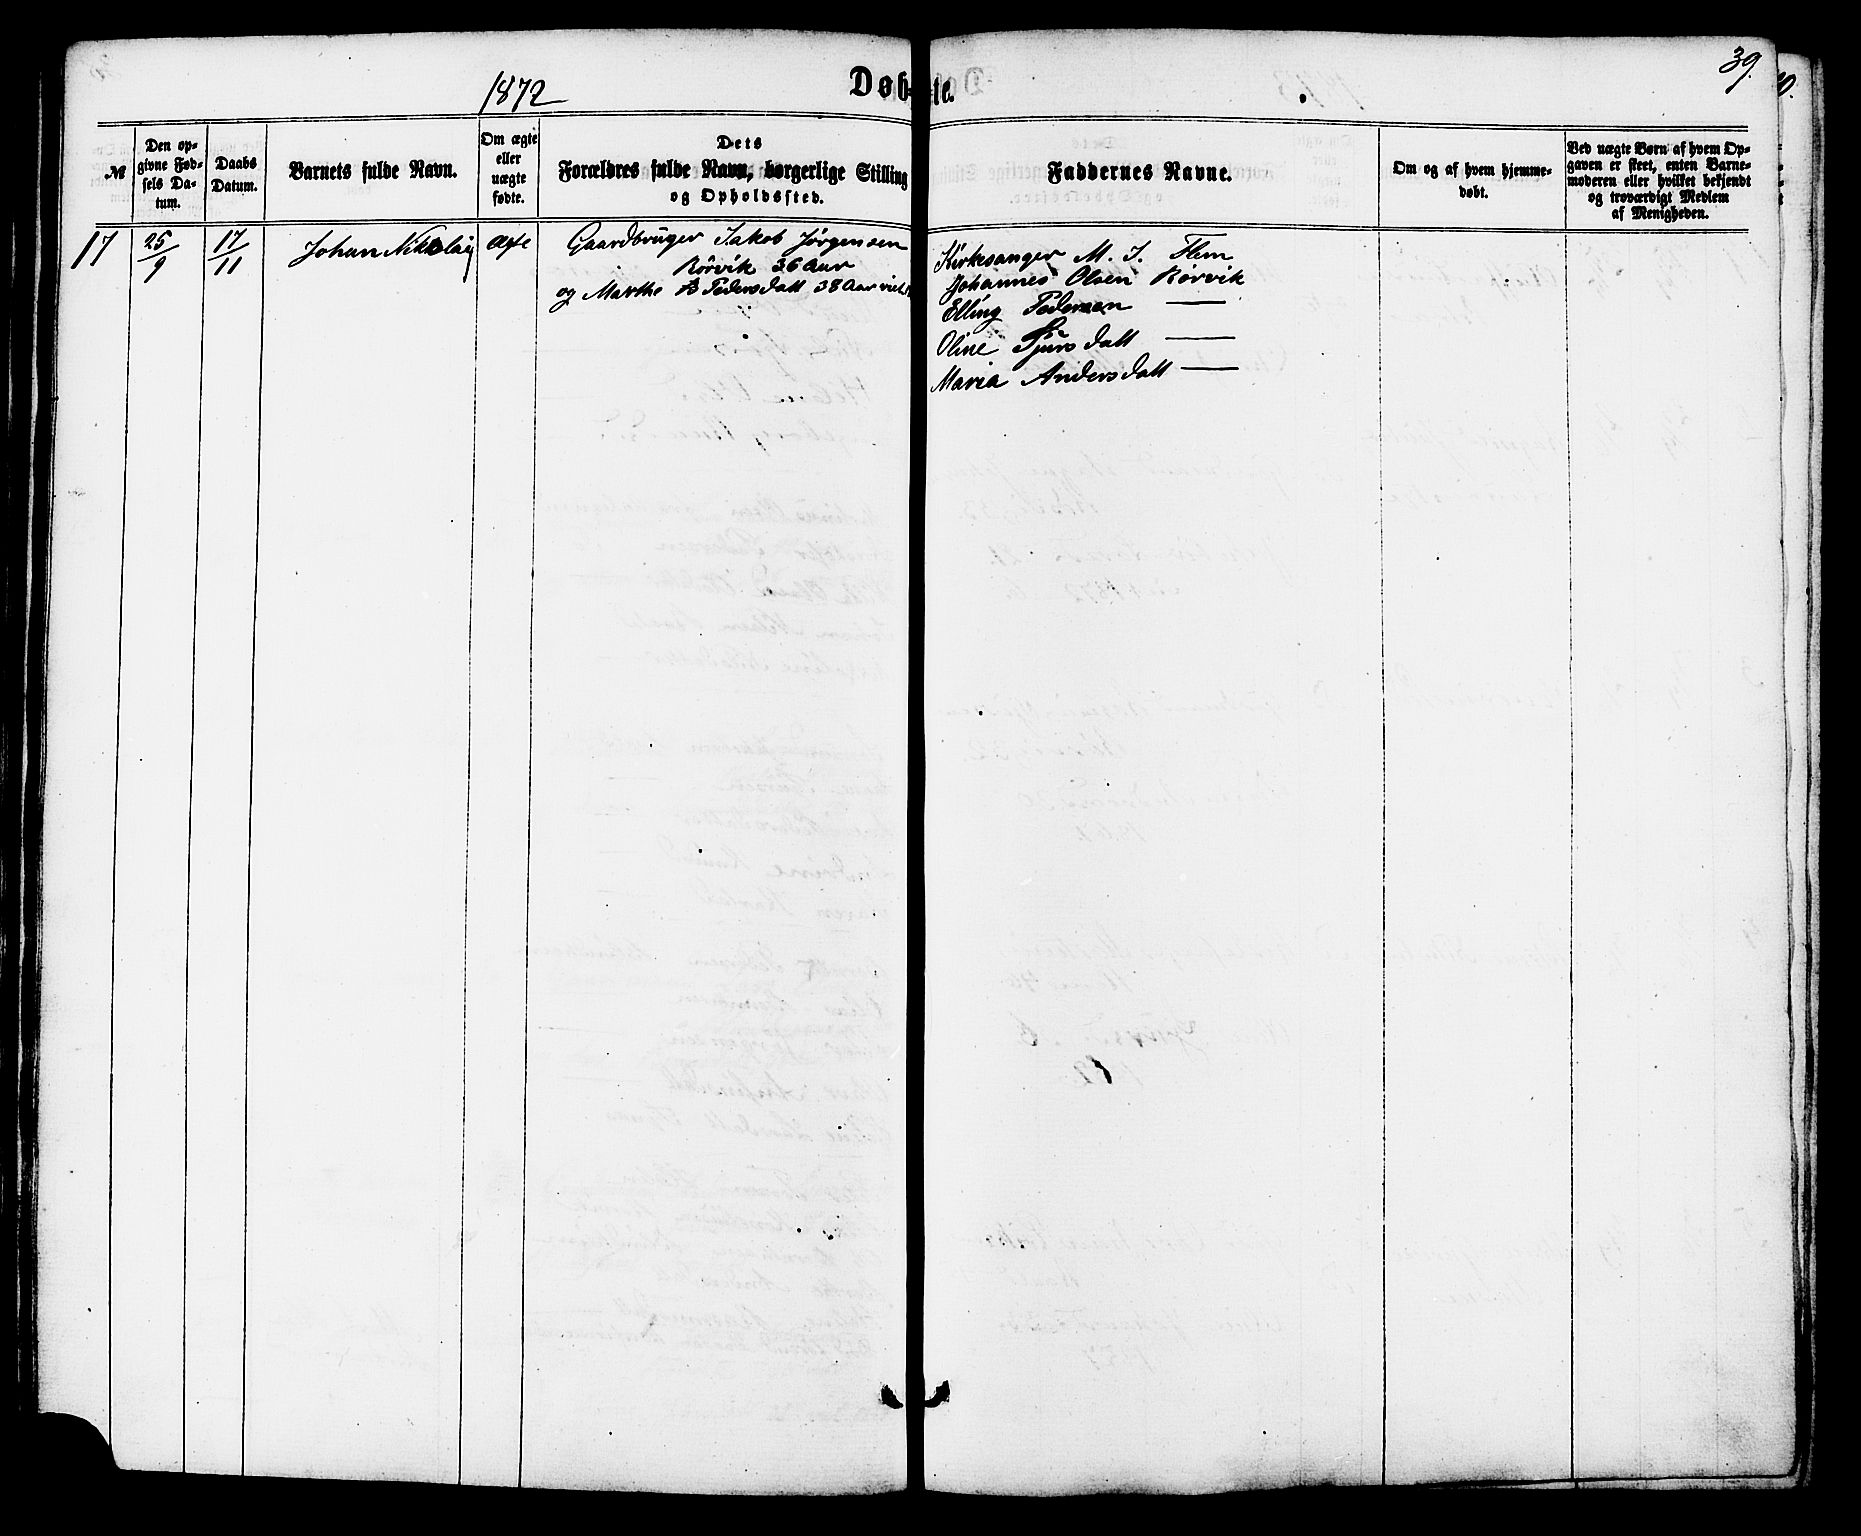 39.
1872
Døbte.
№
Den op-
givne Fød-
sels Da-
tum.
Daabs
Datum.
Barnets fulde Navn.
Om ægte
eller
uægte
fødte.
Dets
Forældres fulde Navn, borgerlige Stilling
og Opholdssted.
Faddernes Navne.
Om og af hvem hjemme-
døbt.
Ved uægte Børn af hvem Op-
gaven er skeet, enten Barne-
moderen eller hvilket bekjendt
og troværdigt Medlem
af Menigheden.
17
25/9
17/11
Johan Nikolai
Ægte
Gaardbruger Jakob Jørgensen
Rørvik 36 Aar
og Marthe B Pedersdatt 38 Aar
Kirkesanger M. J. Flem
Johannes Olsen Rørvik
Elling Pedersen —
Oline Sjursdatt —
Maria Andersdatt —